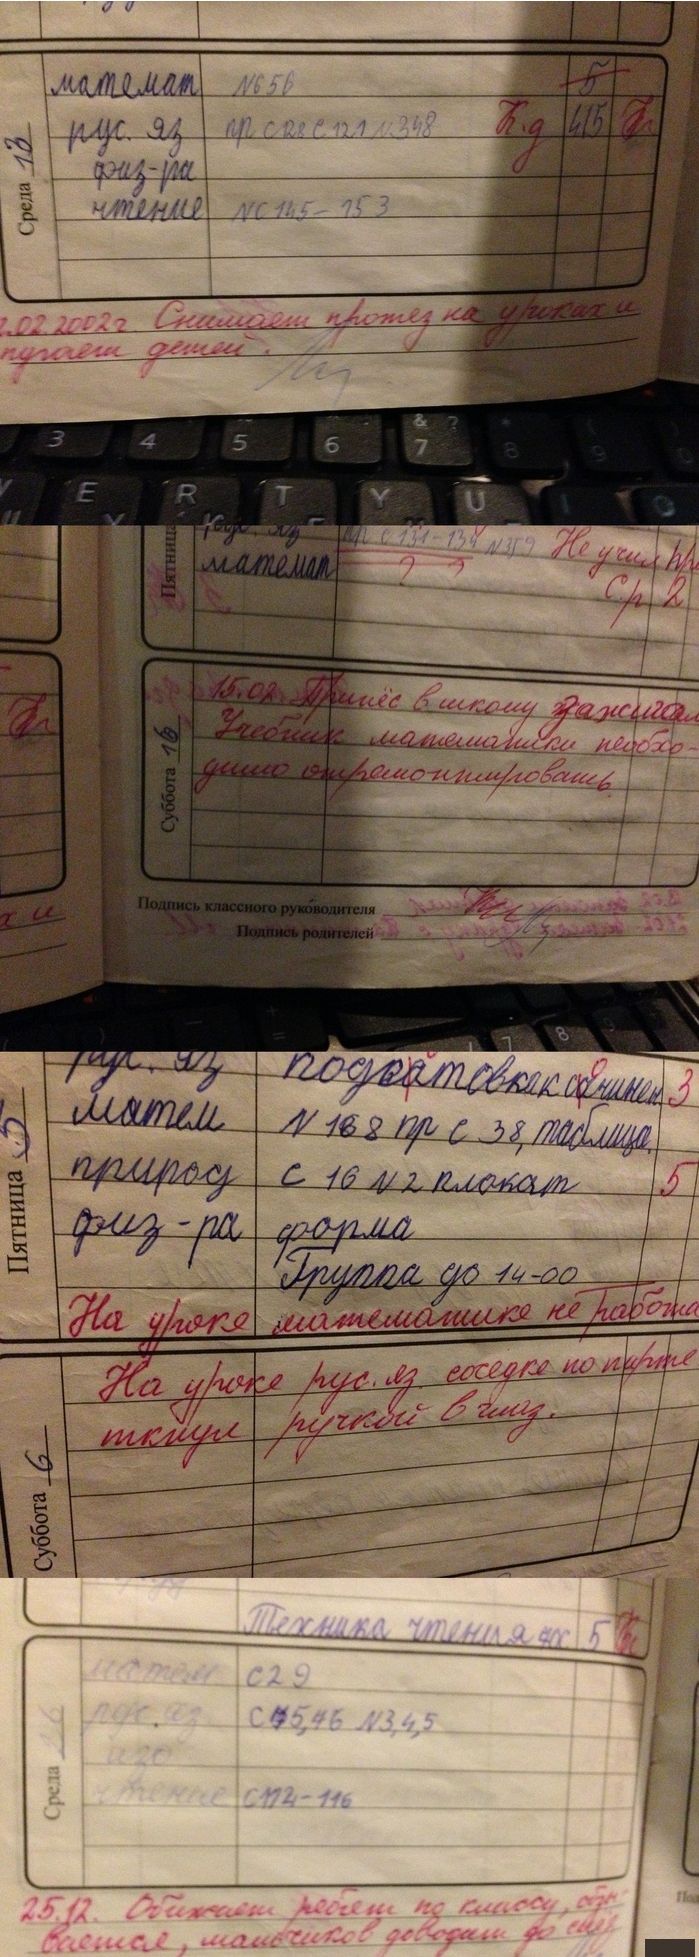 Среда 13
математ №656 5
рус. яз пр с 128 с 121 №348 К.д 4/5
физ-ра
чтение №с 145-153
.02.2002г. Снимает протез на уроках и
пугает детей.
3 4 5 6 & 7 ? * 8 9 0
E R T Y U I O
Пятница
рус. яз пр с 131-134 №359 Не учил пра
математ ? ? С.р 2
Суббота 16
15.02. Принёс в школу зажигал
Учебник математики необхо-
димо отремонтировать.
Подпись классного руководителя
Подпись родителей
ах и
7 8 9
Пятница 5
рус. яз подготовка к сочинен 3
матем №168 пр с 38, таблица.
природ с 16 №2 плакат 5
физ-ра форма
Группа до 14-00
На уроке математике не работа
Суббота 6
На уроке рус. яз. соседке по парте
ткнул ручкой в глаз.
Техника чтения 5
Среда 26
матем с29
рус. яз с75,76 №3,4,5
изо
чтение с112-116
25.12. Обижает ребят по классу, обзы-
вается, мальчиков доводит до слёз